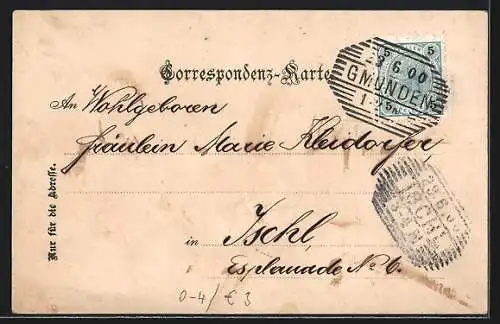 5 5
23 6 00
GMUNDEN
Correspondenz-Karte
An Wohlgeboren
Fräulein Marie Kleidorfer,
in Ischl,
Esplanade No 6.
ISCHL
Nur für die Adresse.
0-4/ € 3